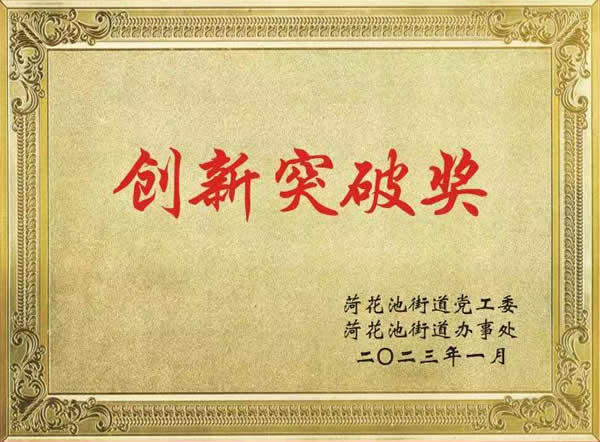 创新突破奖
荷花池街道党工委
荷花池街道办事处
二〇二三年一月